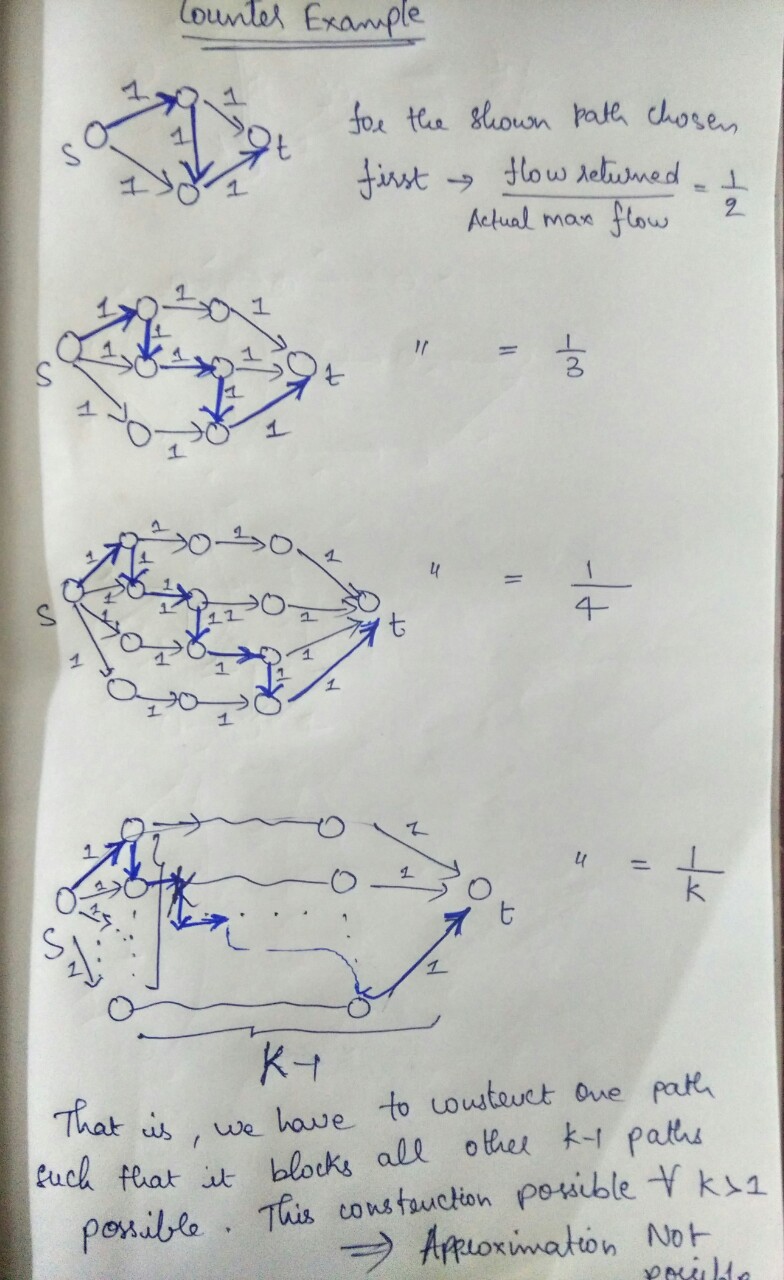 Counter Example
1 1
for the shown path chosen
S 1 t
first → flow returned = 1
1 1
Actual max flow 2
1 1 1
1
S 1 1 1 t
" = 1
3
1
1 1
1
1 1 1
1 1
" = 1
4
S 1 1 1 1 1
1 1 1 t
1 1 1
1 1
1 1
1 1
" = 1
K
S 1 t
1 1
K-1
That is, we have to construct one path
such that it blocks all other k-1 paths
possible. This construction possible ∀ K>1
⇒ Approximation Not
possible